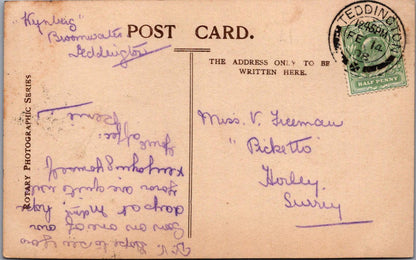 "Kynberg"
Broomwater
Teddington
POST CARD.
THE ADDRESS ONLY TO BE
WRITTEN HERE.
TEDDINGTON
FE 14
HALF PENNY
Miss. V. Freeman
"Picketts"
Horley.
Surrey
ROTARY PHOTOGRAPHIC SERIES
hope to see you
soon on one of our
days at
you are quite
yourself